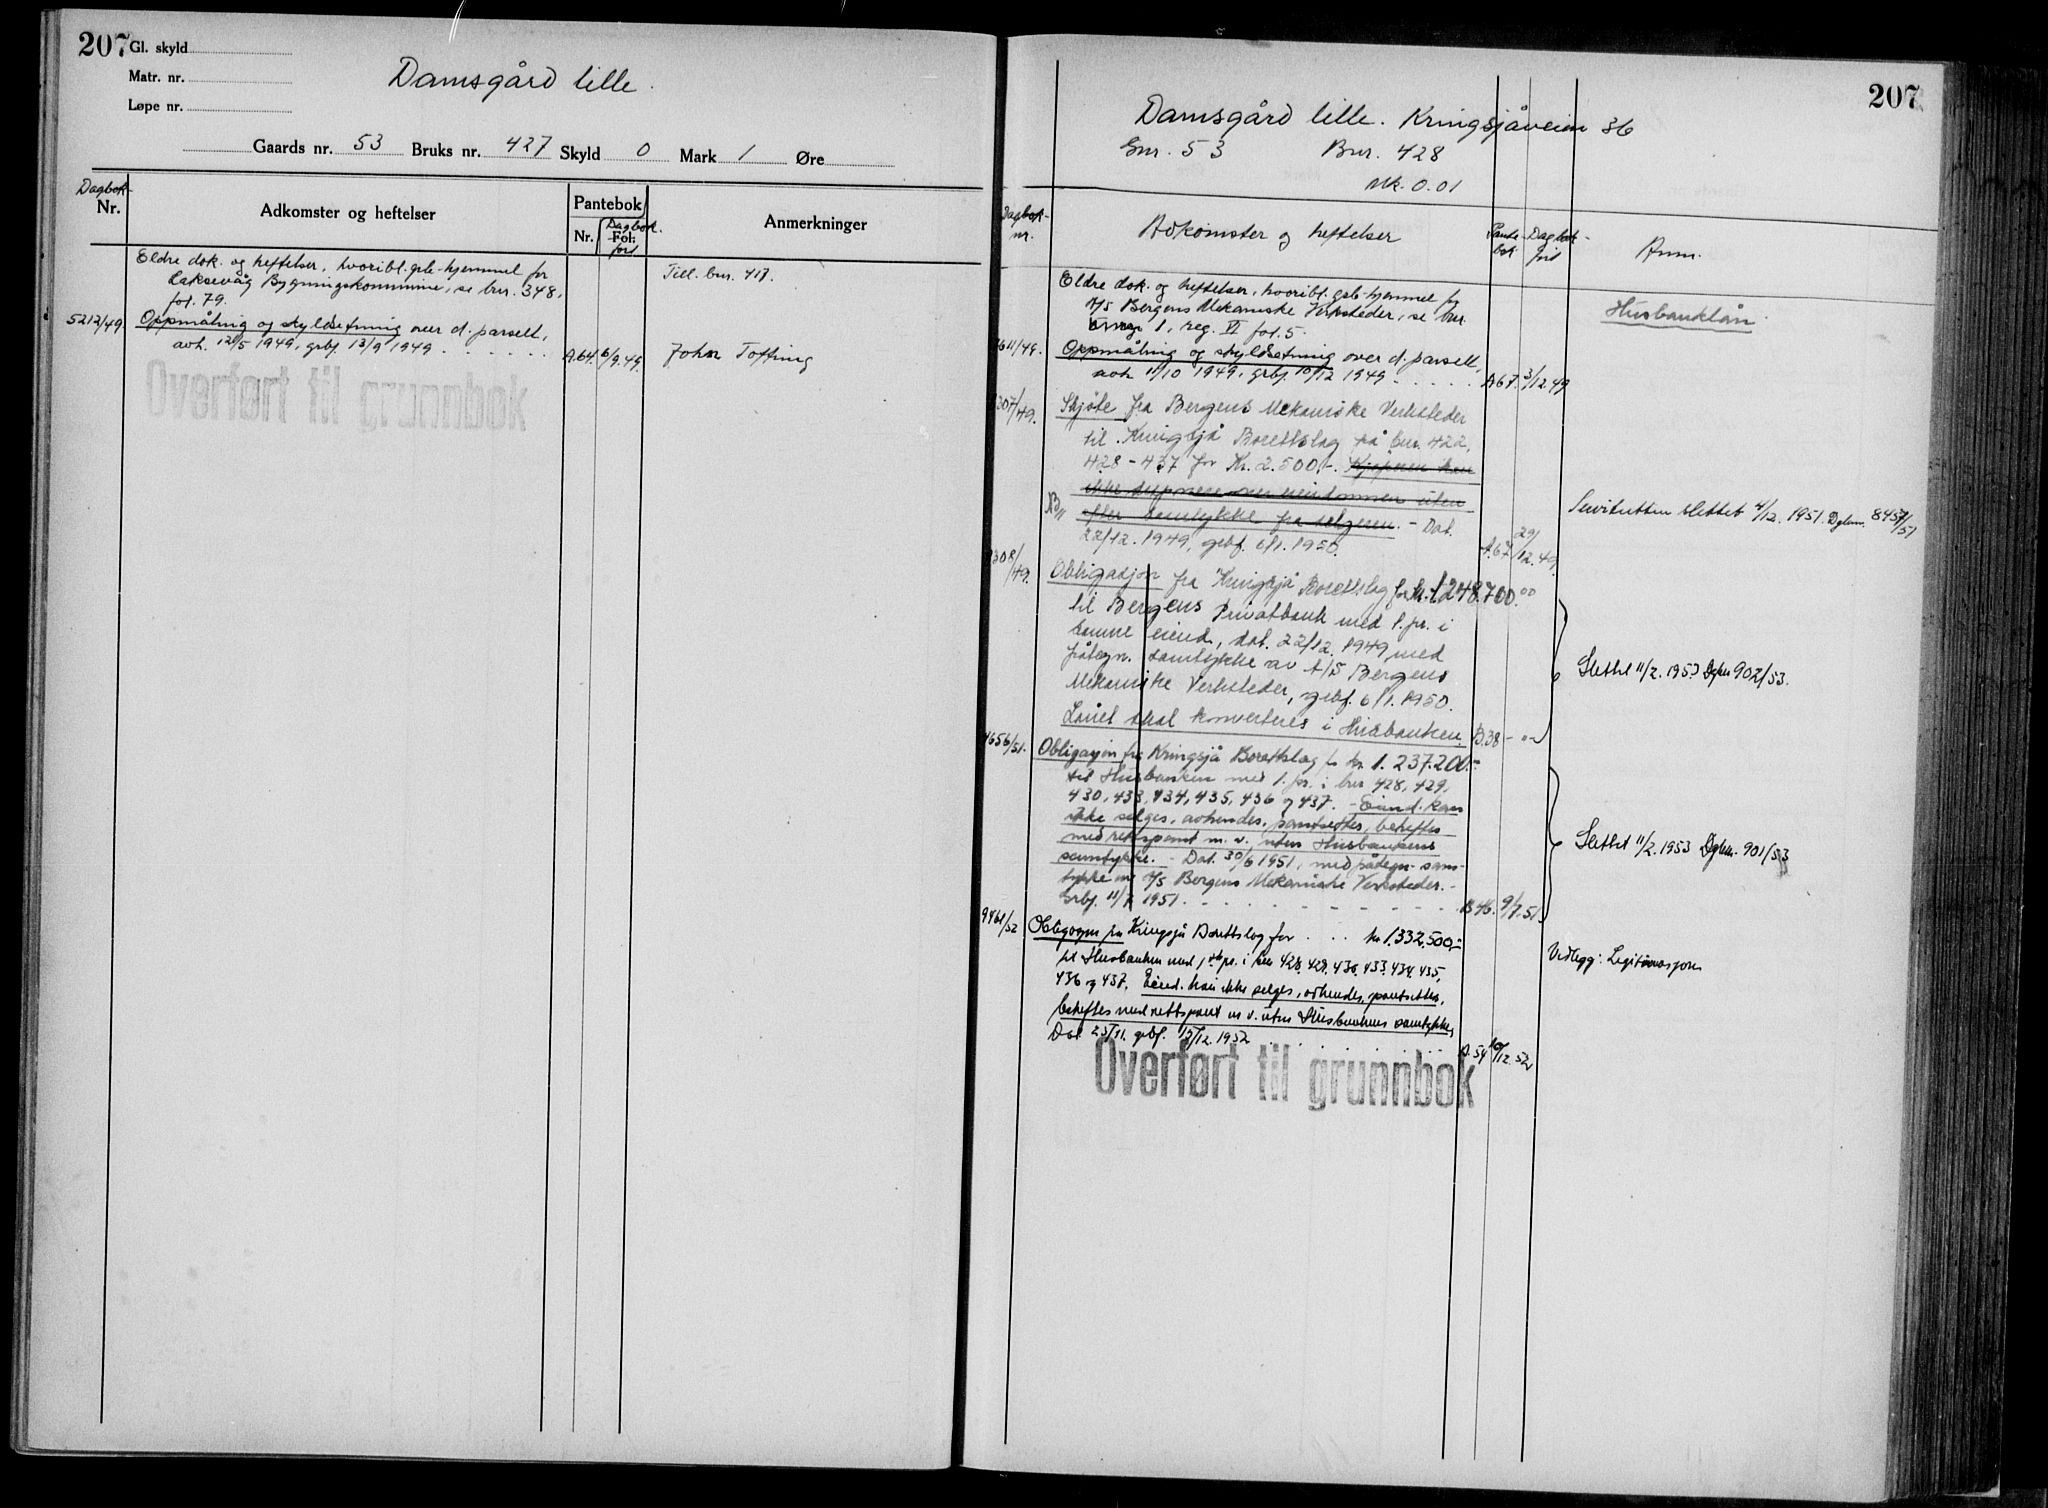 207
Gl. skyld
Matr. nr.
Løpe nr.
Damsgård lille.
Gaards nr. 53 Bruks nr. 427 Skyld 0 Mark 1 Øre
Dagbok-
Nr.
Adkomster og heftelser
Pantebok
Nr.
Dagbok.
Fol.
ført
Anmerkninger
Eldre dok. og heftelser, hvoribl. grb-hjemmel for
Laksevåg Bygningskommune, se bnr. 348,
fol. 79.
Till. bnr. 417.
5212/49
Oppmåling og skyldsetning over d. parsell,
avh. 12/5 1949, grbf. 13/9 1949 . . . . . .
A.64. 6/9.49.
John Toffing
Overført til grunnbok
207
Damsgård lille. Kringsjåveien 36
Gnr. 53 Bnr. 428
Mk. 0.01
Dagbok-
nr.
Adkomster og heftelser
Pante-
bok
Dagbok-
ført
Anm.
Eldre dok. og heftelser, hvoribl. grb-hjemmel for
A/S Bergens Mekaniske Verksteder, se bnr.
1, reg. VI fol. 5.
Husbanklån
7611/49.
Oppmåling og skyldsetning over d. parsell,
avh 11/10 1949, grbf. 10/12 1949 . . . . .
A67. 3/12.49
307/49.
Skjøte fra Bergens Mekaniske Verksteder
til Kringsjå Borettslag på bnr. 422,
428 - 437 for Kr. 2.500.-. Kjøperen kan
ikke disponere over eiendommen uten
efter samtykke fra selgeren. - Dat.
22/12. 1949, grbf. 6/1. 1950.
A.67 29/12.49.
Servitutten slettet 4/12. 1951. Dgbnr. 8457/51
308/49.
Obligasjon fra Kringsjå Borettslag for kr. 1 248.700.00
til Bergens Privatbank med 1. pr. i
samme eiend., dat. 22/12. 1949, med
påtegn. samtykke av A/S Bergens
Mekaniske Verksteder, grbf. 6/1. 1950.
Lånet skal konverteres i Husbanken.
B.38 - " -
Slettet 11/2. 1953 Dgbnr 902/53.
4656/51.
Obligasjon fra Kringsjå Borettslag for kr. 1.237.200.-
til Husbanken med 1. pr. i bnr 428, 429,
430, 433, 434, 435, 436 og 437. - Eiend. kan
ikke selges, avhendes, pantsettes, beheftes
med rettspant m. v. uten Husbankens
samtykke. - Dat. 30/6 1951, med pådegn. sam-
tykke av A/S Bergens Mekaniske Verksteder. -
Grbf. 11/7 1951. - - - - - - - - -
B46. 9/7.51.
Slettet 11/2. 1953 Dgbnr. 901/53
9461/52
Obligasjon fra Kringsjå Borettslag for . . . kr 1.332.500.-
til Husbanken med 1ste pr. i bnr 428, 429, 430, 433, 434, 435,
436 og 437. Eiend. kan ikke selges, avhendes, pantsettes,
beheftes med rettspant m v. uten Husbankens samtykke,
Dat 25/11. grbf. 15/12. 1952 . . . . . . . .
12.52
Vedlegg: Legitimasjon
Overført til grunnbok